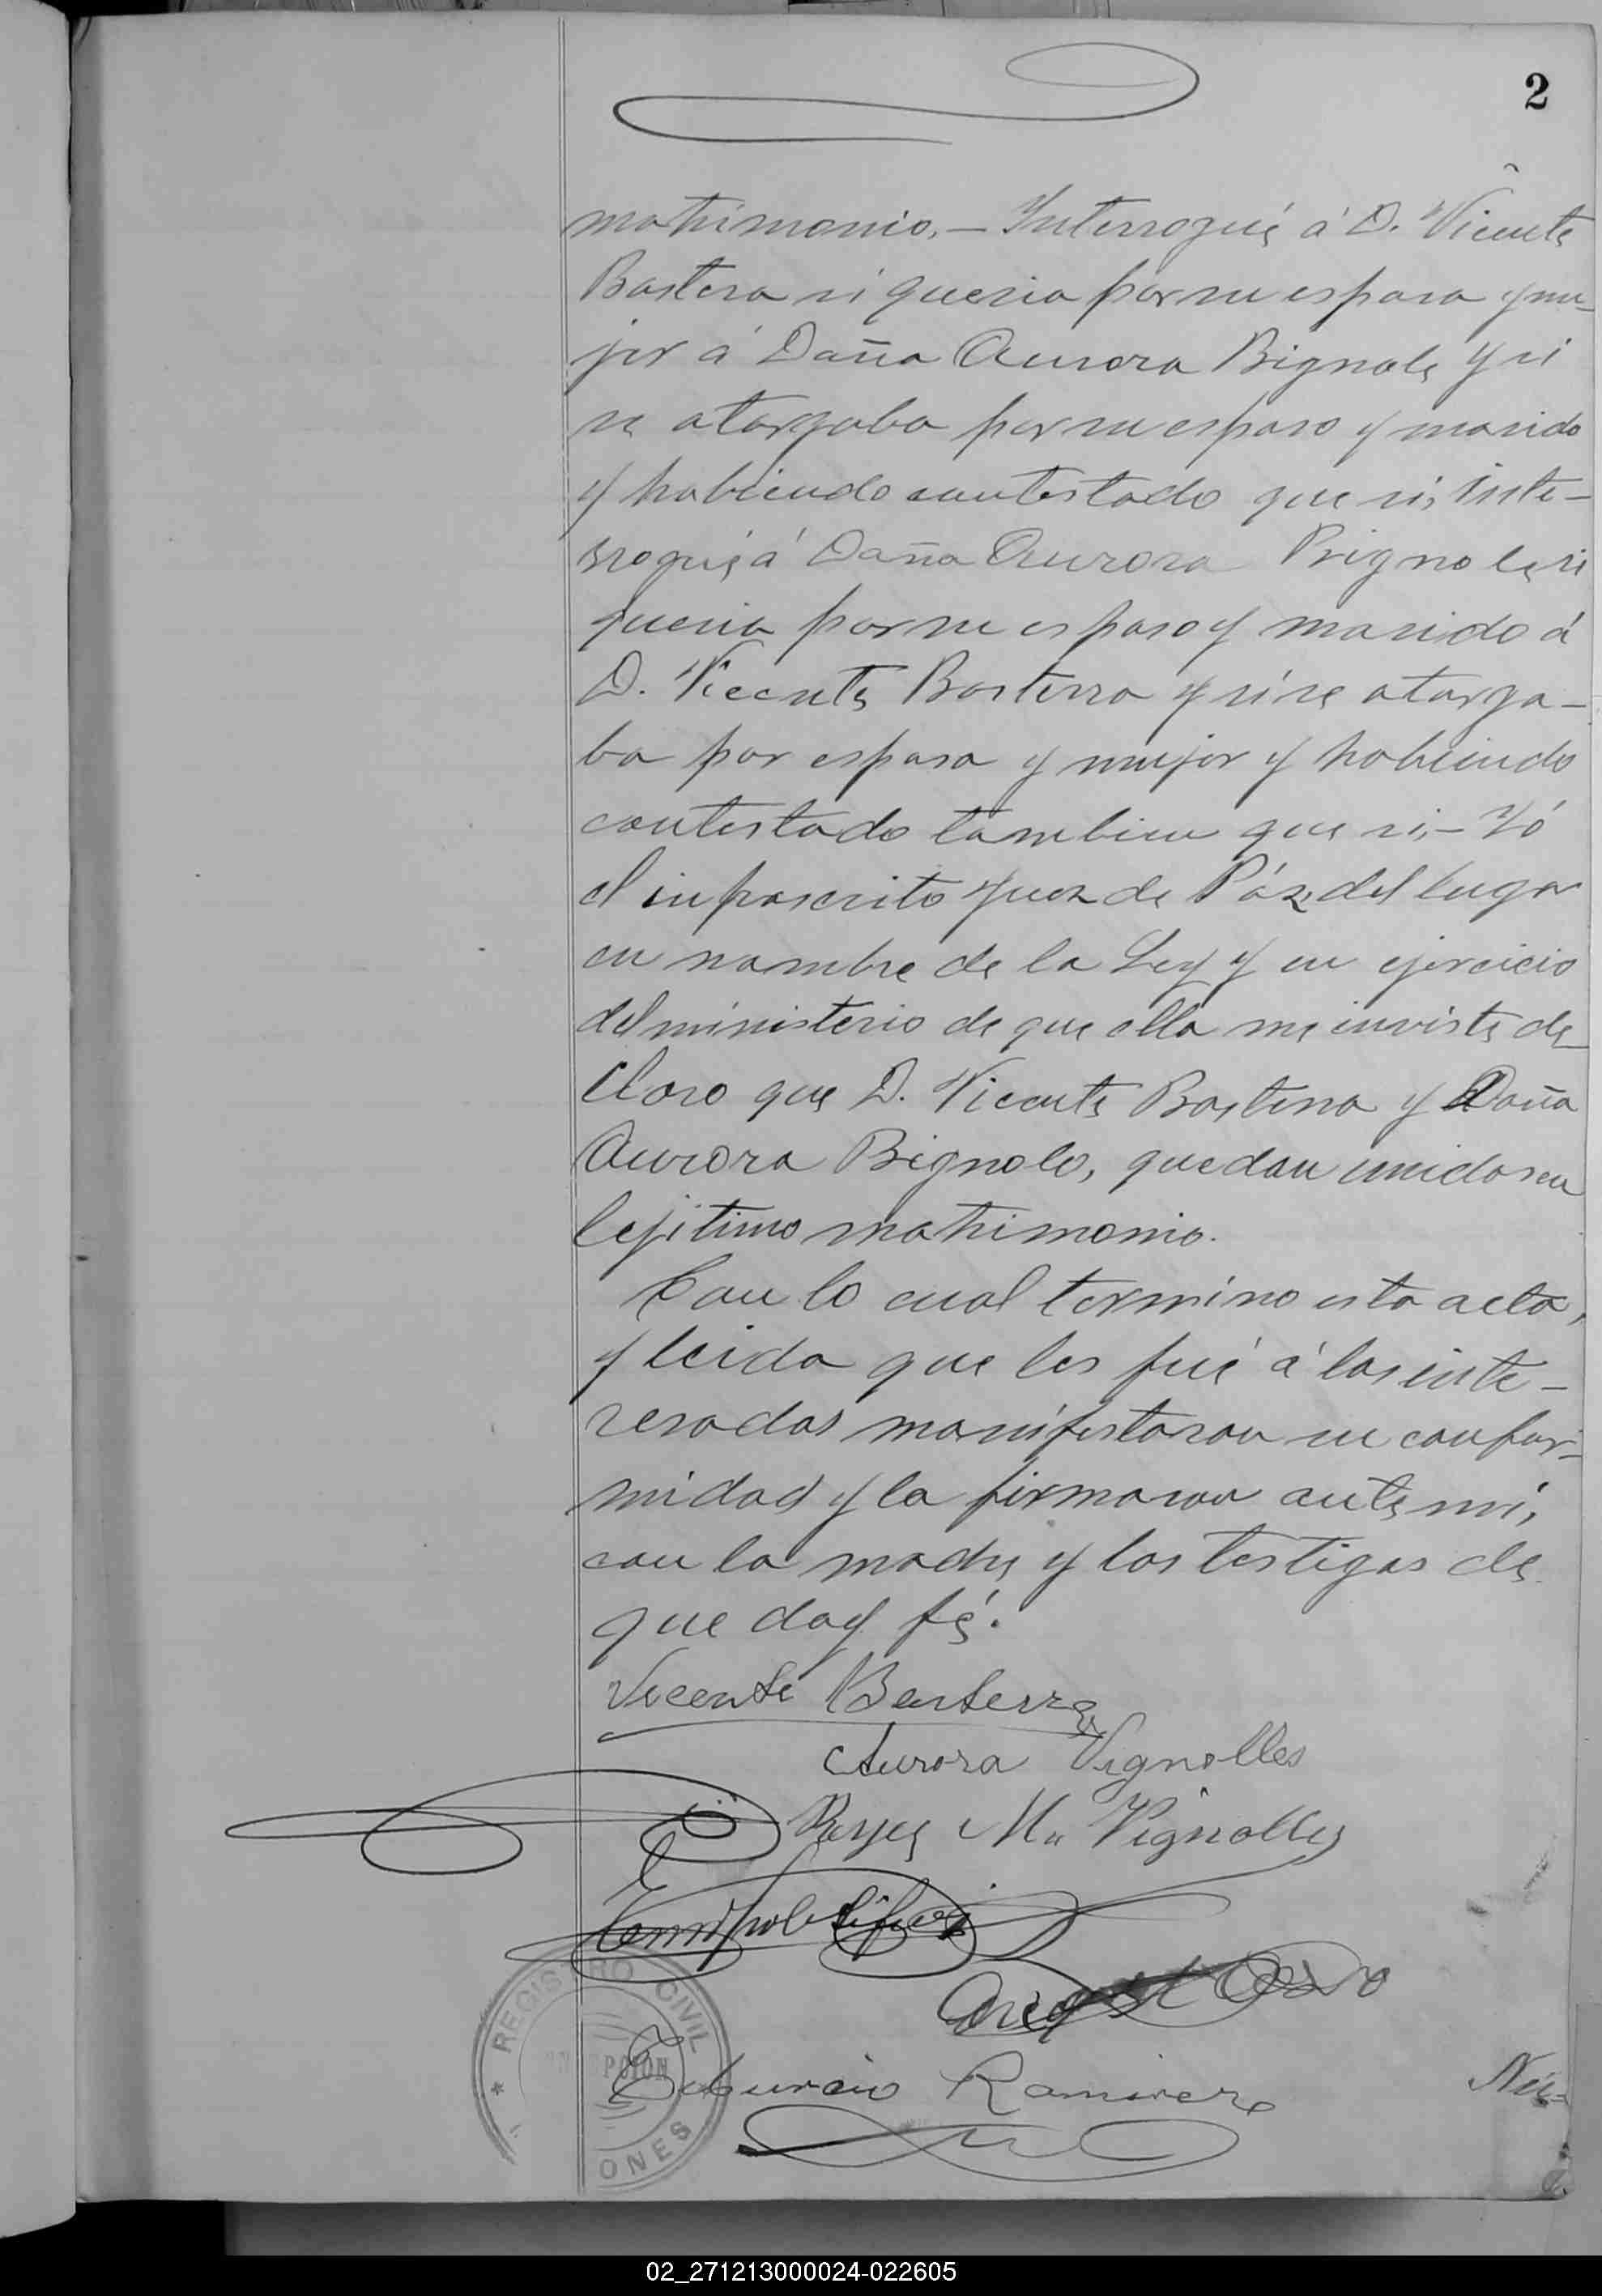 2
matrimonio.— Interrogué á D. Vicente
Bastera si queria por su esposa y mu-
jer á Doña Aurora Bignole y si
se otorgaba por su esposo y marido
y habiendo contestado que si, inte-
rrogué á Doña Aurora Bignole si
queria por su esposo y marido á
D. Vicente Basterra y si se otorga-
ba por esposa y mujer y habiendo
contestado tambien que si,— Yó
el infrascrito Juez de Páz, del lugar
en nombre de la Ley y en ejercicio
del ministerio de que ella me inviste de-
claro que D. Vicente Basterra y Doña
Aurora Bignole, quedan unidos en
lejitimo matrimonio.
Con lo cual termino esta acta,
y leida que les fué á los inte-
resados manifestaron su confor-
midad y la firmaron ante mi,
con la madre y los testigos de
que doy fé.
Vicente Basterra
Aurora Vignolles
Reyes M. Vignolles
REGISTRO CIVIL
Tiburcio Ramirez
02_271213000024-022605